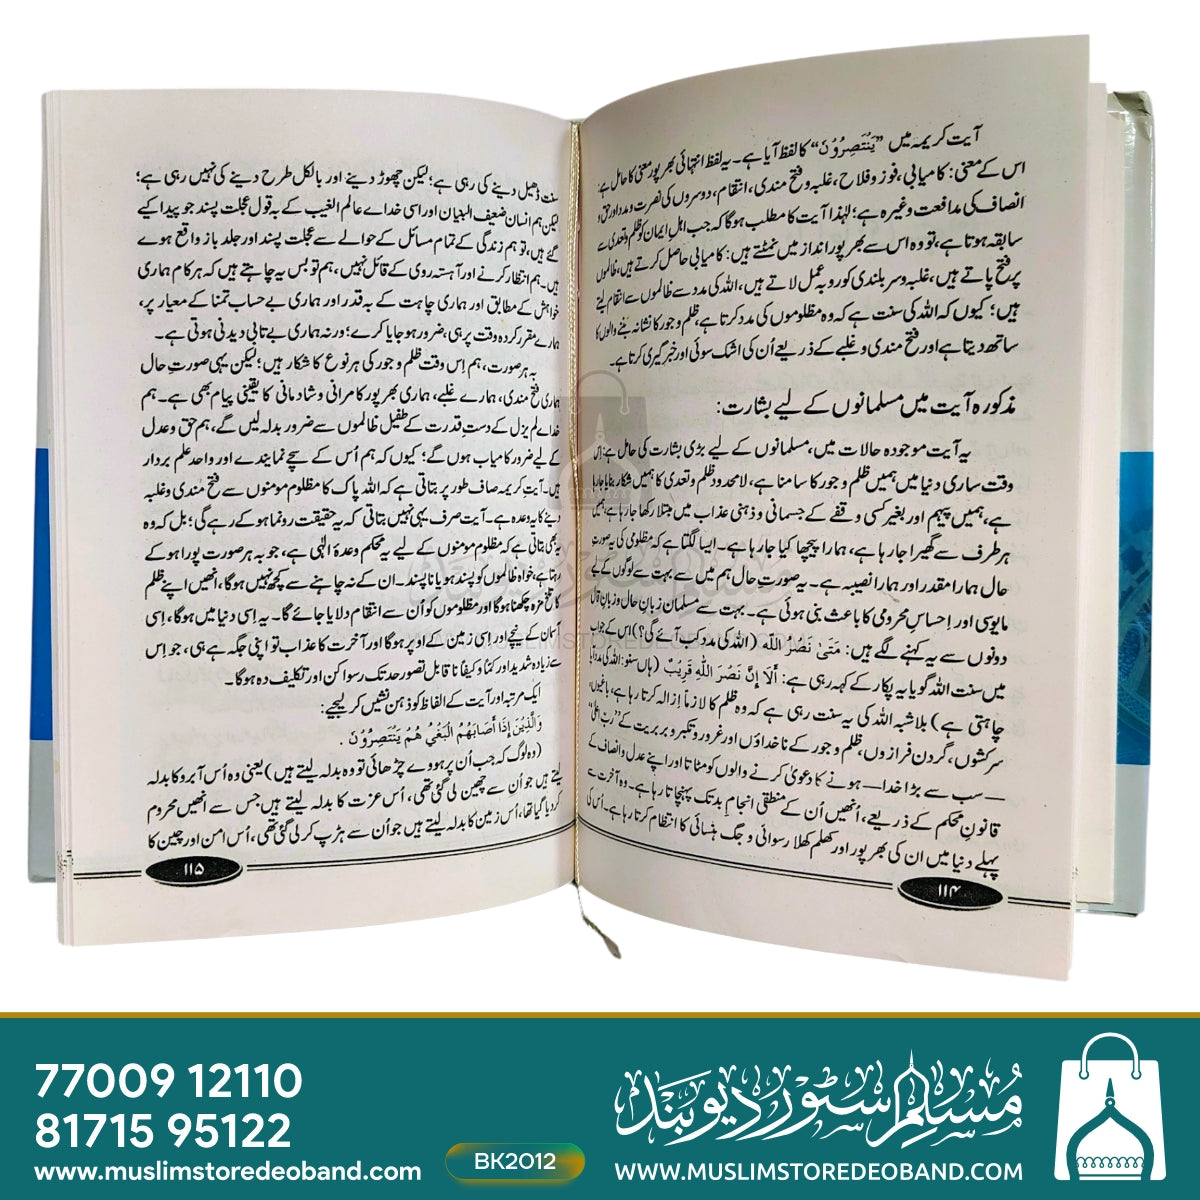 آیت کریمہ میں ”یَنْتَصِرُوْنَ“ کا لفظ آیا ہے۔ یہ لفظ انتہائی بھرپور معنی کا حامل ہے:
اس کے معنی: کامیابی، فوز و فلاح، غلبہ و فتح مندی، انتقام، دوسروں کی نصرت و مدد اور حق و
انصاف کی مدافعت وغیرہ ہے؛ لہٰذا آیت کا مطلب ہوگا کہ جب اہلِ ایمان کو ظلم و تعدی سے
سابقہ ہوتا ہے، تو وہ اس سے بھرپور انداز میں نمٹتے ہیں: کامیابی حاصل کرتے ہیں، ظالموں
پر فتح پاتے ہیں، غلبہ و سربلندی کو روبہ عمل لاتے ہیں، اللہ کی مدد سے ظالموں سے انتقام لیتے
ہیں؛ کیوں کہ اللہ کی سنت ہے کہ وہ مظلوموں کی مدد کرتا ہے، ظلم و جور کا نشانہ بننے والوں کا
ساتھ دیتا ہے اور فتح مندی و غلبے کے ذریعے اُن کی اشک سوئی اور خبر گیری کرتا ہے۔
مذکورہ آیت میں مسلمانوں کے لیے بشارت:
یہ آیت موجودہ حالات میں، مسلمانوں کے لیے بڑی بشارت کی حامل ہے: اس
وقت ساری دنیا میں ہمیں ظلم و جور کا سامنا ہے، لامحدود ظلم و تعدی کا ہمیں شکار بنایا جارہا
ہے، ہمیں پیہم اور بغیر کسی وقفے کے جسمانی و ذہنی عذاب میں مبتلا رکھا جارہا ہے، ہمیں
ہر طرف سے گھیرا جارہا ہے، ہمارا پیچھا کیا جارہا ہے۔ ایسا لگتا ہے کہ مظلومی کی یہ صورتِ
حال ہمارا مقدر اور ہمارا نصیبہ ہے۔ یہ صورتِ حال ہم میں سے بہت سے لوگوں کے لیے
مایوسی اور احساسِ محرومی کا باعث بنی ہوئی ہے۔ بہت سے مسلمان زبانِ حال و زبانِ قال
دونوں سے یہ کہنے لگے ہیں: مَتیٰ نَصْرُ اللّٰہ (اللہ کی مدد کب آئے گی؟) اس کے جواب
میں سنت اللہ گویا یہ پکار کے کہہ رہی ہے: أَلَا إِنَّ نَصْرَ اللّٰہِ قَرِیْبٌ (ہاں سنو: اللہ کی مدد آیا
چاہتی ہے) بلا شبہ اللہ کی یہ سنت رہی ہے کہ وہ ظلم کا لازماً اِزالہ کرتا رہا ہے، باغیوں،
سرکشوں، گردن فرازوں، ظلم و جور کے ناخداؤں اور غرور و تکبر و بربریت کے ”ربِ اعلیٰ“
—سب سے بڑا خدا— ہونے کا دعویٰ کرنے والوں کو مٹاتا اور اپنے عدل و انصاف کے
قانونِ محکم کے ذریعے، اُنھیں اُن کے منطقی انجامِ بد تک پہنچاتا رہا ہے۔ وہ آخرت سے
پہلے دنیا میں ان کی بھرپور اور کھلم کھلا رسوائی و جگ ہنسائی کا انتظام کرتا رہا ہے۔ اُس کی
۱۱۴
سنت ڈھیل دینے کی رہی ہے؛ لیکن چھوڑ دینے اور بالکل طرح دینے کی نہیں رہی ہے؛
لیکن ہم انسان ضعیف البیان اور اسی خدائے عالم الغیب کے بہ قول عجلت پسند جو پیدا کیے
گئے ہیں، تو ہم زندگی کے تمام مسائل کے حوالے سے عجلت پسند اور جلد باز واقع ہوے
ہیں۔ ہم انتظار کرنے اور آہستہ روی کے قائل نہیں، ہم تو بس یہ چاہتے ہیں کہ ہر کام ہماری
خواہش کے مطابق اور ہماری چاہت کے بہ قدر اور ہماری بے حساب تمنا کے معیار پر،
ہمارے مقرر کردہ وقت پر ہی، ضرور ہوجایا کرے؛ ورنہ ہماری بے تابی دیدنی ہوتی ہے۔
بہ ہر صورت، ہم اِس وقت ظلم و جور کی ہر نوع کا شکار ہیں؛ لیکن یہی صورتِ حال
ہماری فتح مندی، ہمارے غلبے، ہماری بھرپور کامرانی و شادمانی کا یقینی پیام بھی ہے۔ ہم
خدائے لم یزل کے دستِ قدرت کے طفیل ظالموں سے ضرور بدلہ لیں گے، ہم حق و عدل
کے لیے ضرور کامیاب ہوں گے؛ کیوں کہ ہم اُس کے سچے نمایندے اور واحد علم بردار
ہیں۔ آیتِ کریمہ صاف طور پر بتاتی ہے کہ اللہ پاک کا مظلوم مومنوں سے فتح مندی و غلبہ
دینے کا یہ وعدہ ہے۔ آیت صرف یہی نہیں بتاتی کہ یہ حقیقت رونما ہوکے رہے گی؛ بل کہ وہ
یہ بھی بتاتی ہے کہ مظلوم مومنوں کے لیے یہ محکم وعدۂ الٰہی ہے، جو بہ ہر صورت پورا ہوکے
رہتا ہے، خواہ ظالموں کو پسند ہو یا ناپسند۔ ان کے نہ چاہنے سے کچھ نہیں ہوگا، انھیں اپنے ظلم
کا تلخ مزہ چکھنا ہوگا اور مظلوموں کو اُن سے انتقام دلایا جائے گا۔ یہ اِسی دنیا میں ہوگا، اِسی
آسمان کے نیچے اور اِسی زمین کے اوپر ہوگا اور آخرت کا عذاب تو اپنی جگہ ہے ہی، جو اِس
سے زیادہ شدید اور کمّا و کیفاً ناقابلِ تصور حد تک رسوا کن اور تکلیف دہ ہوگا۔
ایک مرتبہ اور آیت کے الفاظ کو ذہن نشیں کر لیجیے:
وَالَّذِیْنَ إِذَا أَصَابَهُمُ الْبَغْيُ هُمْ يَنْتَصِرُوْنَ .
(وہ لوگ کہ جب اُن پر ہووے چڑھائی تو وہ بدلہ لیتے ہیں) یعنی وہ اُس آبرو کا بدلہ
لیتے ہیں جو اُن سے چھین لی گئی تھی، اُس عزت کا بدلہ لیتے ہیں جس سے انھیں محروم
کر دیا گیا تھا، اُس زمین کا بدلہ لیتے ہیں جو اُن سے ہڑپ کر لی گئی تھی، اُس امن اور چین کا
۱۱۵
MUSLIMSTOREDEOBAND.COM
77009 12110
81715 95122
www.muslimstoredeoband.com
BK2012
مسلم سٹور دیوبند
WWW.MUSLIMSTOREDEOBAND.COM